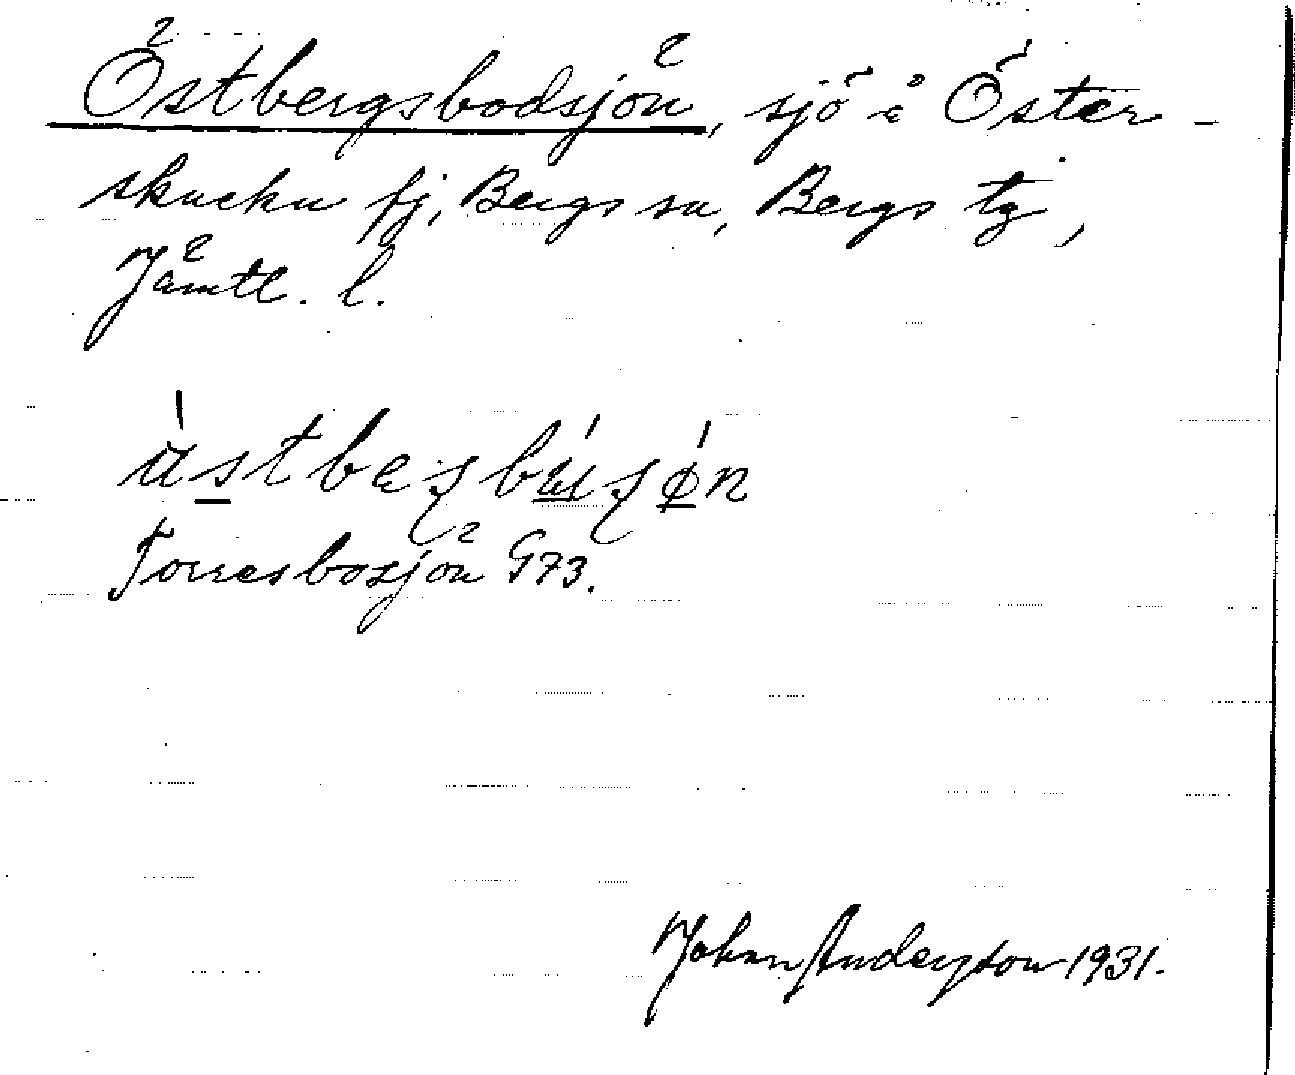 Östbergsbodsjön, sjö i Öster-
skucku fj, Bergs sn, Bergs tg,
Jämtl. l.
Torresbosjön G73.
Johan Andersson 1931.